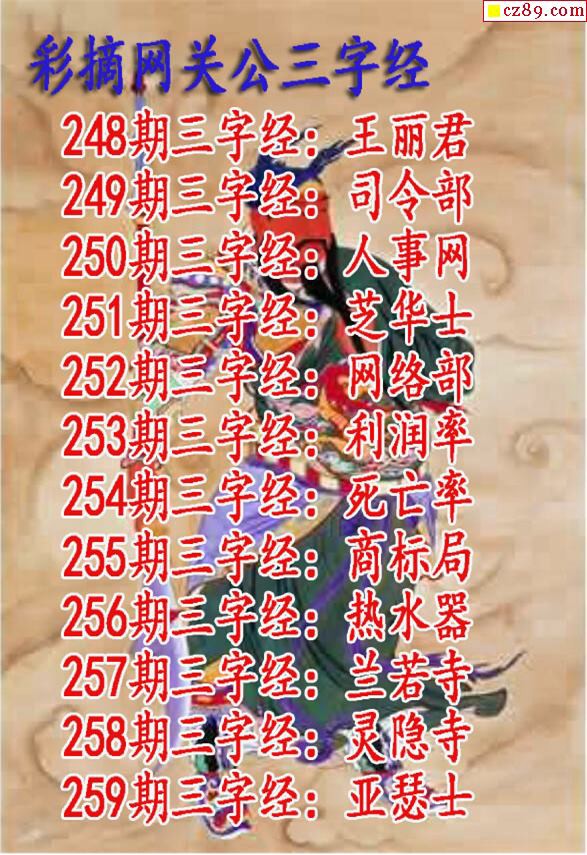 cz89.com
彩摘网关公三字经
248期三字经：王丽君
249期三字经：司令部
250期三字经：人事网
251期三字经：芝华士
252期三字经：网络部
253期三字经：利润率
254期三字经：死亡率
255期三字经：商标局
256期三字经：热水器
257期三字经：兰若寺
258期三字经：灵隐寺
259期三字经：亚瑟士